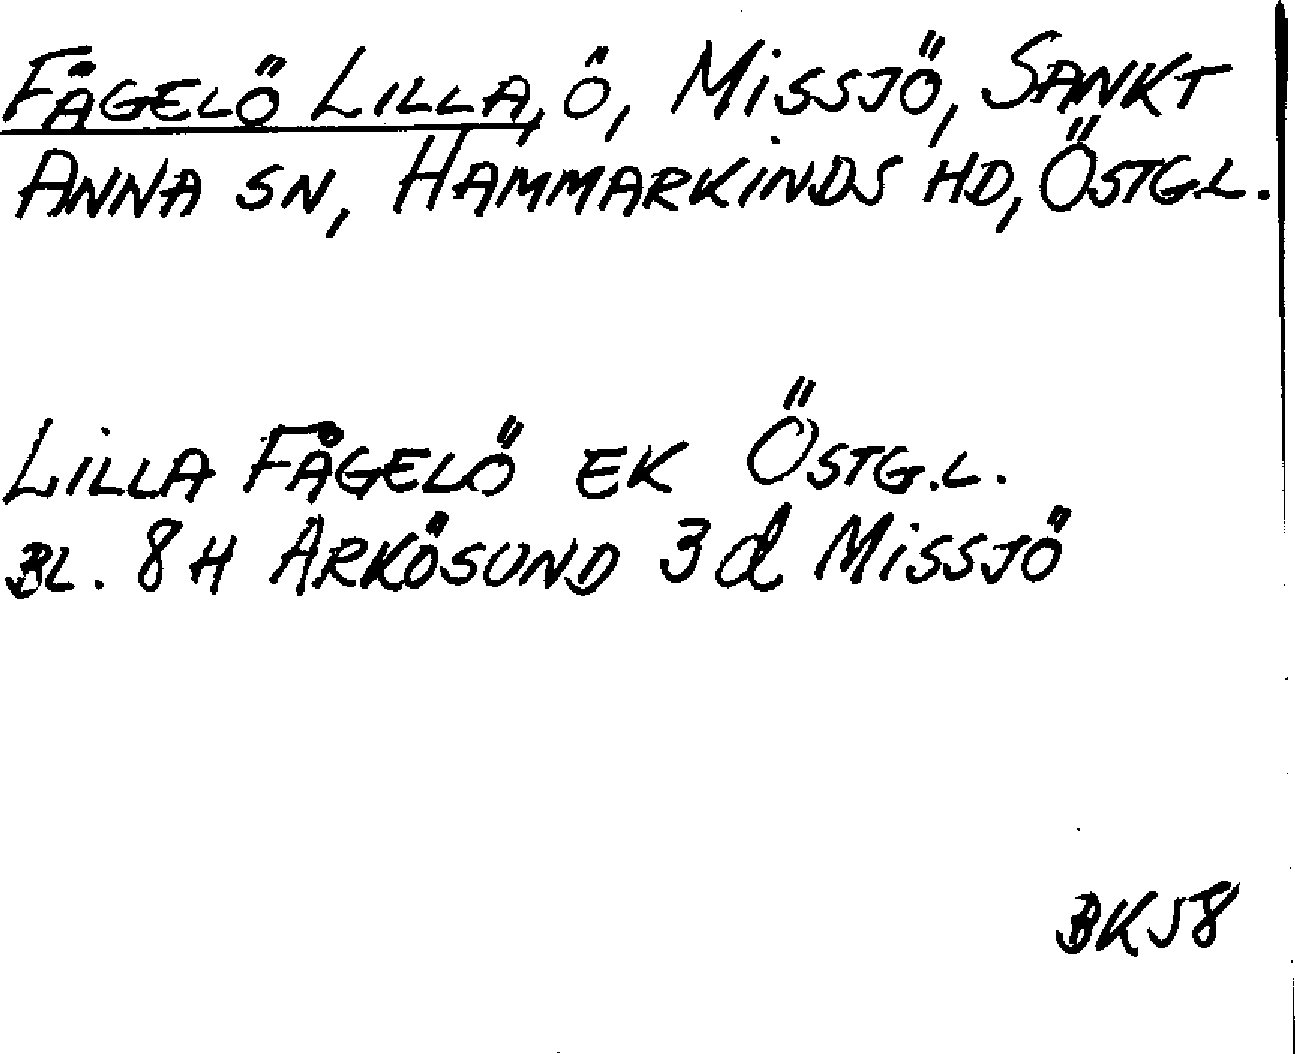 Fågelö Lilla, ö, Missjö, Sankt
Anna sn, Hammarkinds hd, Östg.l.
Lilla Fågelö EK Östg.l.
Bl. 8H Arkösund 3d Missjö
BK58